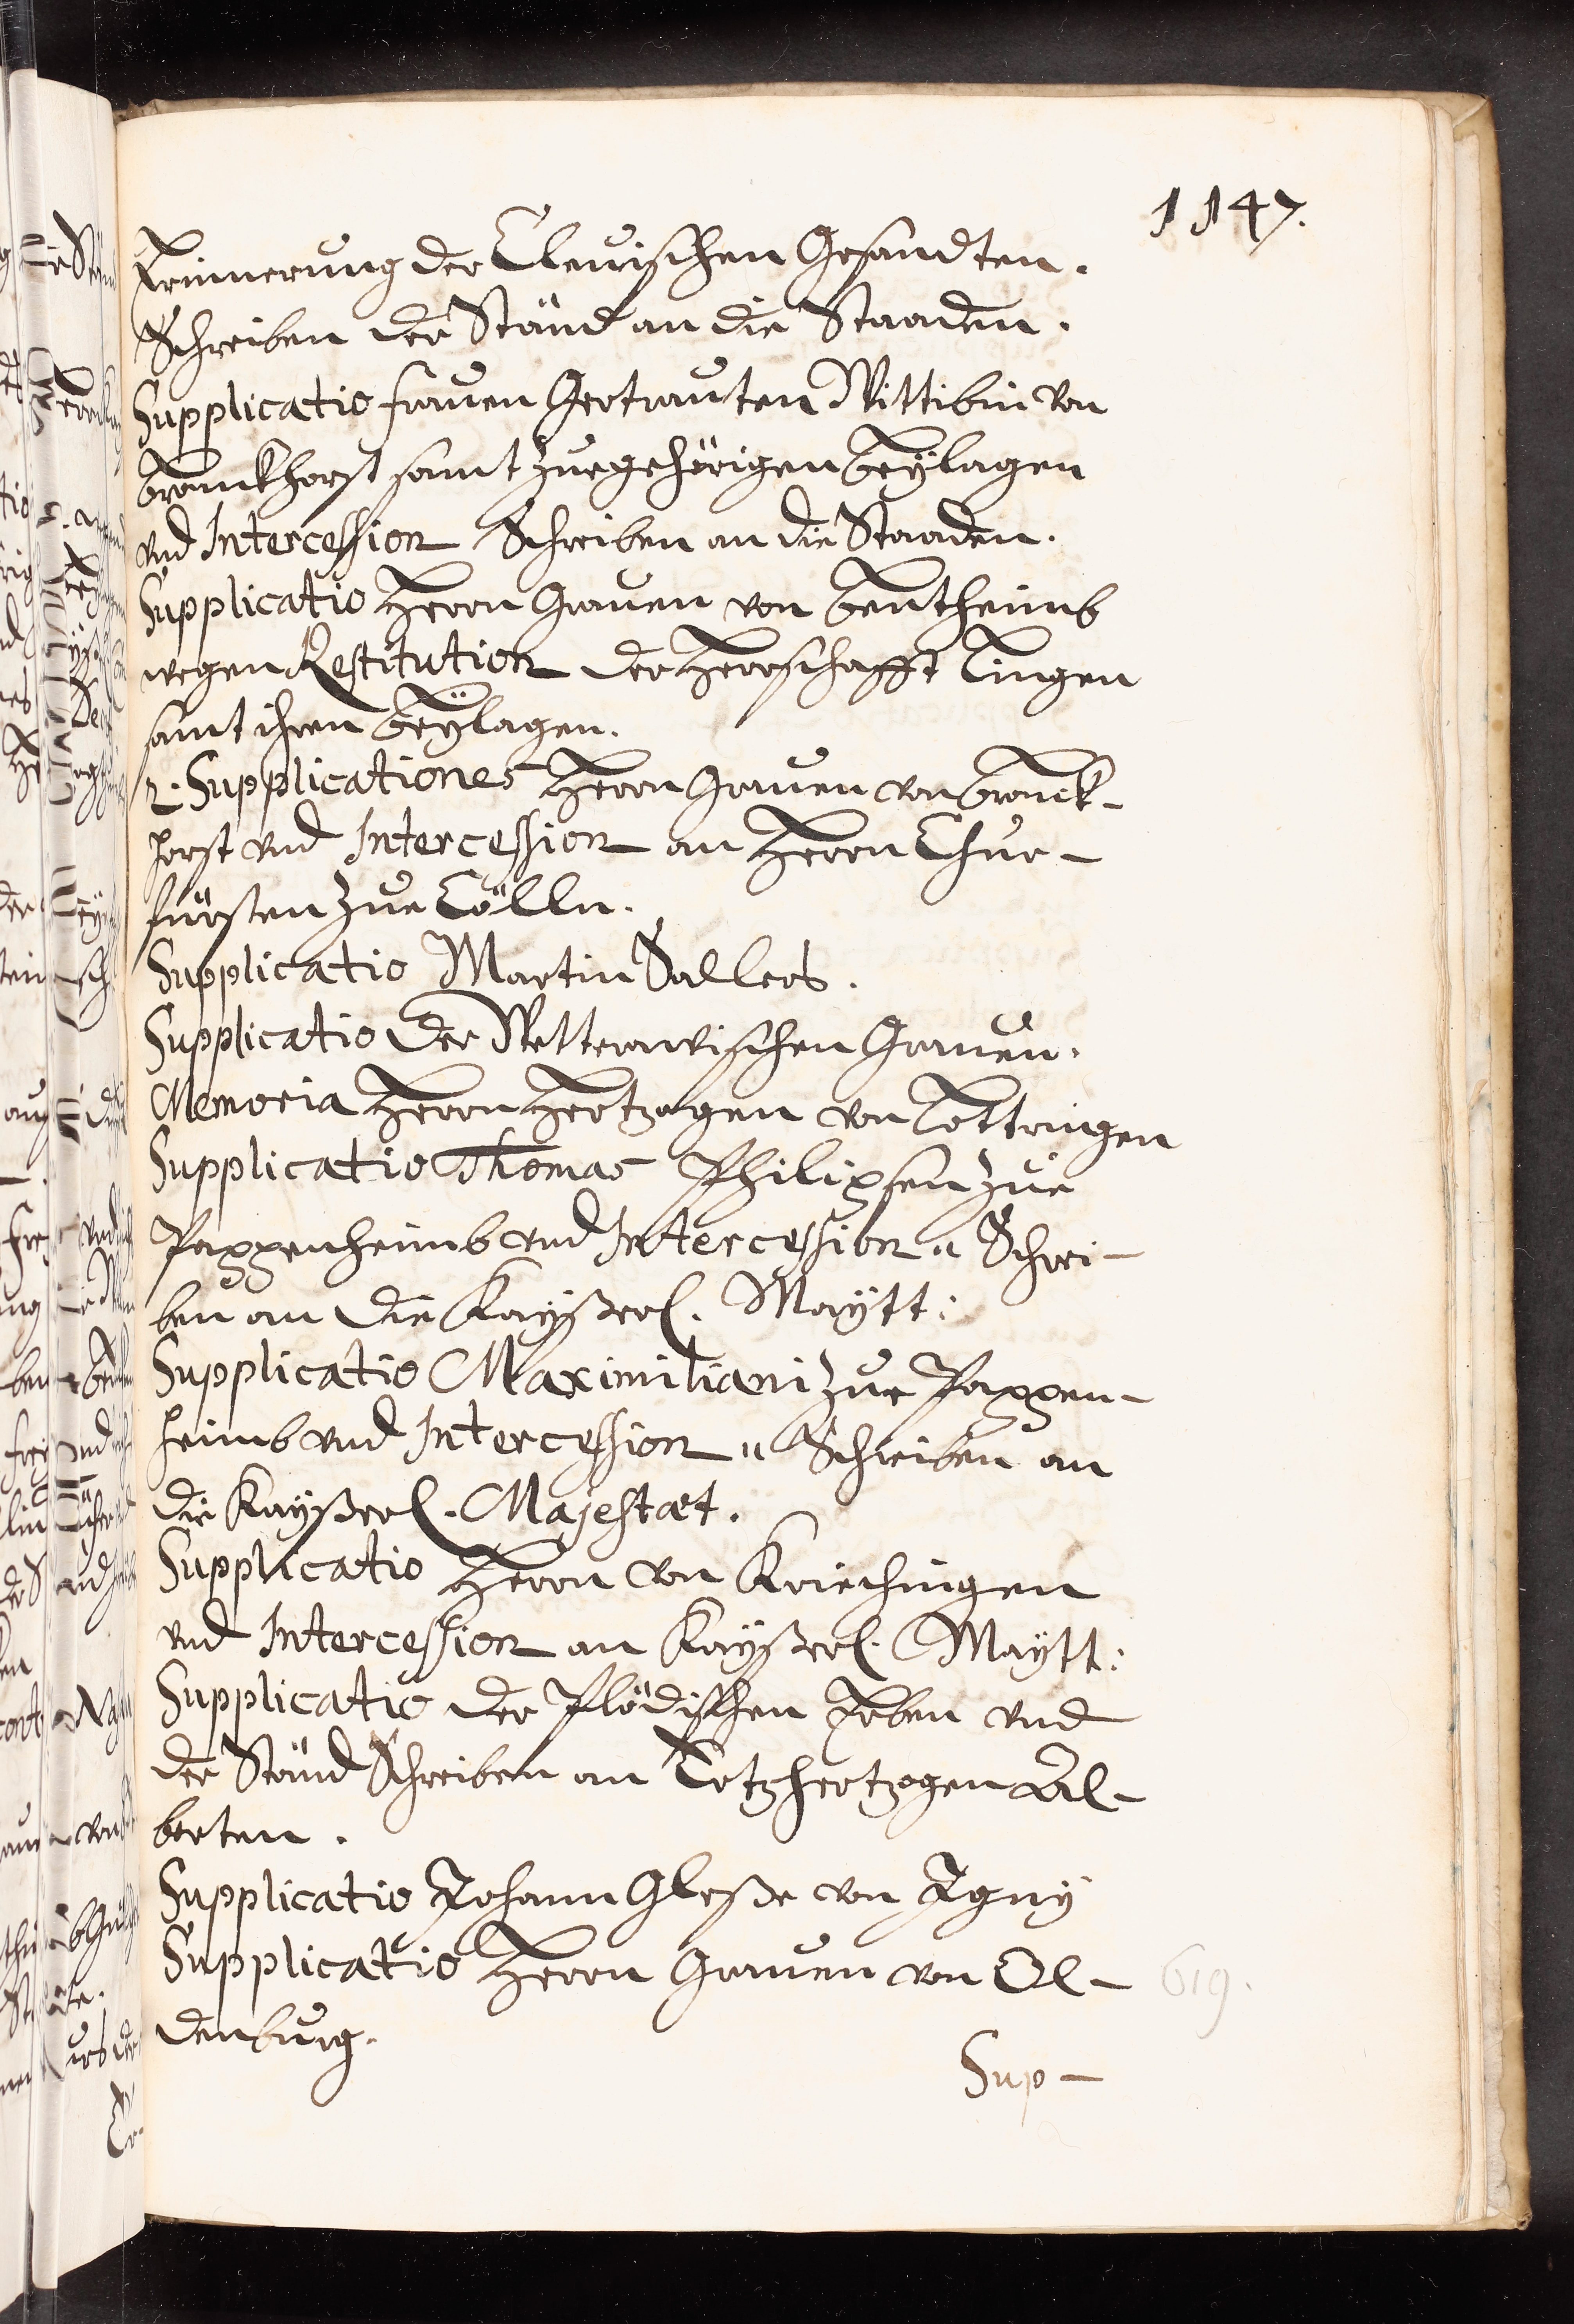 1147.
Erinnerung der Cleuischen Gesandten.
Schreiben der Ständ an die Staaden.
Supplicatio frauen Gertrauten Wittibin von
Bronckhorst samt zuegehörigen Beÿlagen
vnd Intercession Schreiben an die Staaden.
Supplicatio Herrn Grauen von Bentheimb
wegen Restitution der Herrschafft Lingen
samt ihren Beÿlagen.
2. Supplicationes Herrn Grauen von Bronck-
horst vnd Intercession an Herrn Chur-
fürsten zue Cölln.
Supplicatio Martin Sallers.
Supplicatio der Wetterawischen Grauen.
Memoria Herrn Hertzogen von Lottringen
Supplicatio Thomas Philipsen zue
Pappenheimb vnd Intercession" Schrei-
ben an die Kaÿßerl. Maÿtt:
Supplicatio Maximiliani zue Pappen-
heimb vnd Intercession" Schreiben an
die Kaÿßerl. Majestæt.
Supplicatio Herrn von Kriechingen
vnd Intercession an Kaÿßerl. Maÿtt:
Supplicatio der Plödischen Erben vnd
der Ständ Schreiben an Ertzhertzogen Al-
berten.
Supplicatio Johann Gleße von Igny
Supplicatio Herrn Grauen von Ol-
denburg.
619.
Sup-